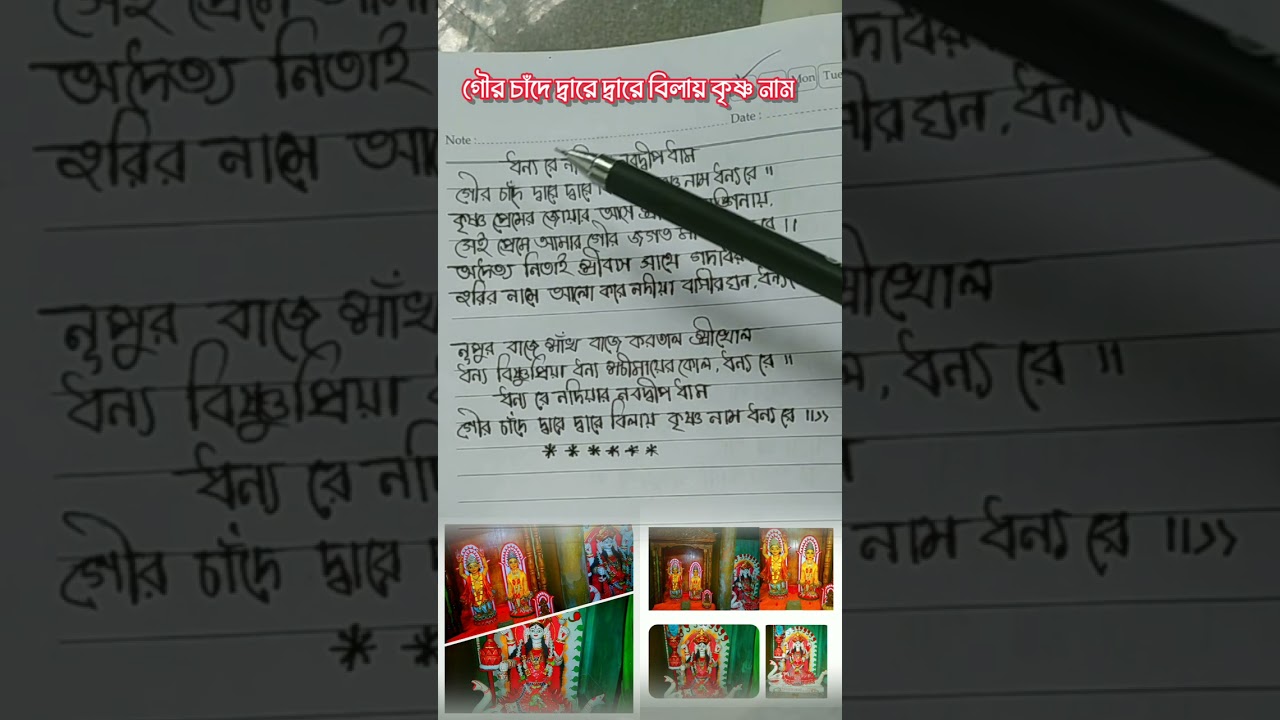 গৌর চাঁদে দ্বারে দ্বারে বিলায় কৃষ্ণ নাম
Mon Tue
Note :
Date :
ধন্য রে নবদ্বীপ ধাম
গৌর চাঁদে দ্বারে দ্বারে নাম ধন্য রে ॥
কৃষ্ণ প্রেমের জোয়ার আসে
সেই প্রেমে আমার গৌর জগত রে ।।
অদৈত্য নিতাই শ্রীবাস সাথে গদাধর
হরির নামে আলো করে নদীয়া বাসীর ঘন, ধন্য
নূপুর বাজে শাঁখ বাজে করতাল শ্রীখোল
ধন্য বিষ্ণুপ্রিয়া ধন্য শচীমায়ের কোল, ধন্য রে ॥
ধন্য রে নদিয়ার নবদ্বীপ ধাম
গৌর চাঁদে দ্বারে দ্বারে বিলায় কৃষ্ণ নাম ধন্য রে ॥>>
******